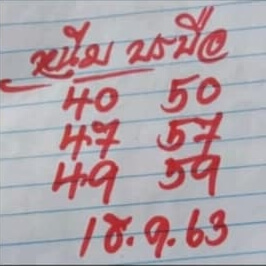 หนึ่ม บรบือ
40 50
47 57
49 59
1ช.9.63